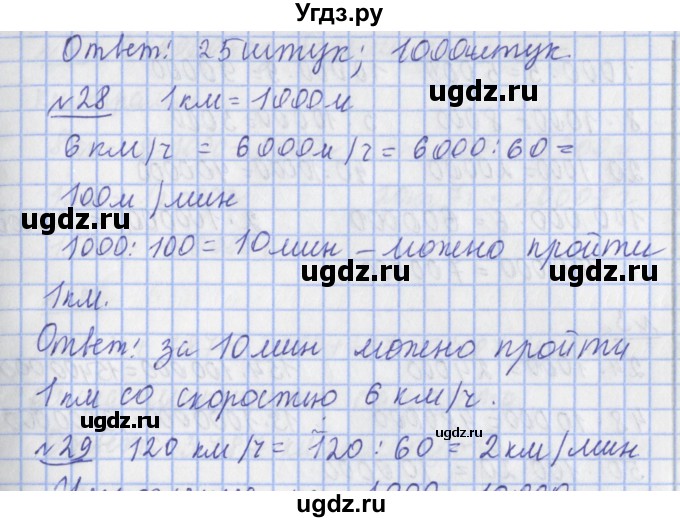 Угдз.ру
Ответ: 25 штук; 1000 штук.
№28 1 км = 1000 м
ugdz.ru ugdz.ru
6 км/ч = 6000 м/ч = 6000 : 60 =
100 м/мин
ugdz.ru ugdz.ru
1000 : 100 = 10 мин – можно пройти
ugdz.ru ugdz.ru
1 км.
Ответ: за 10 мин можно пройти
ugdz.ru ugdz.ru
1 км со скоростью 6 км/ч.
ugdz.ru ugdz.ru
№29 120 км/ч = 120 : 60 = 2 км/мин
ugdz.ru ugdz.ru